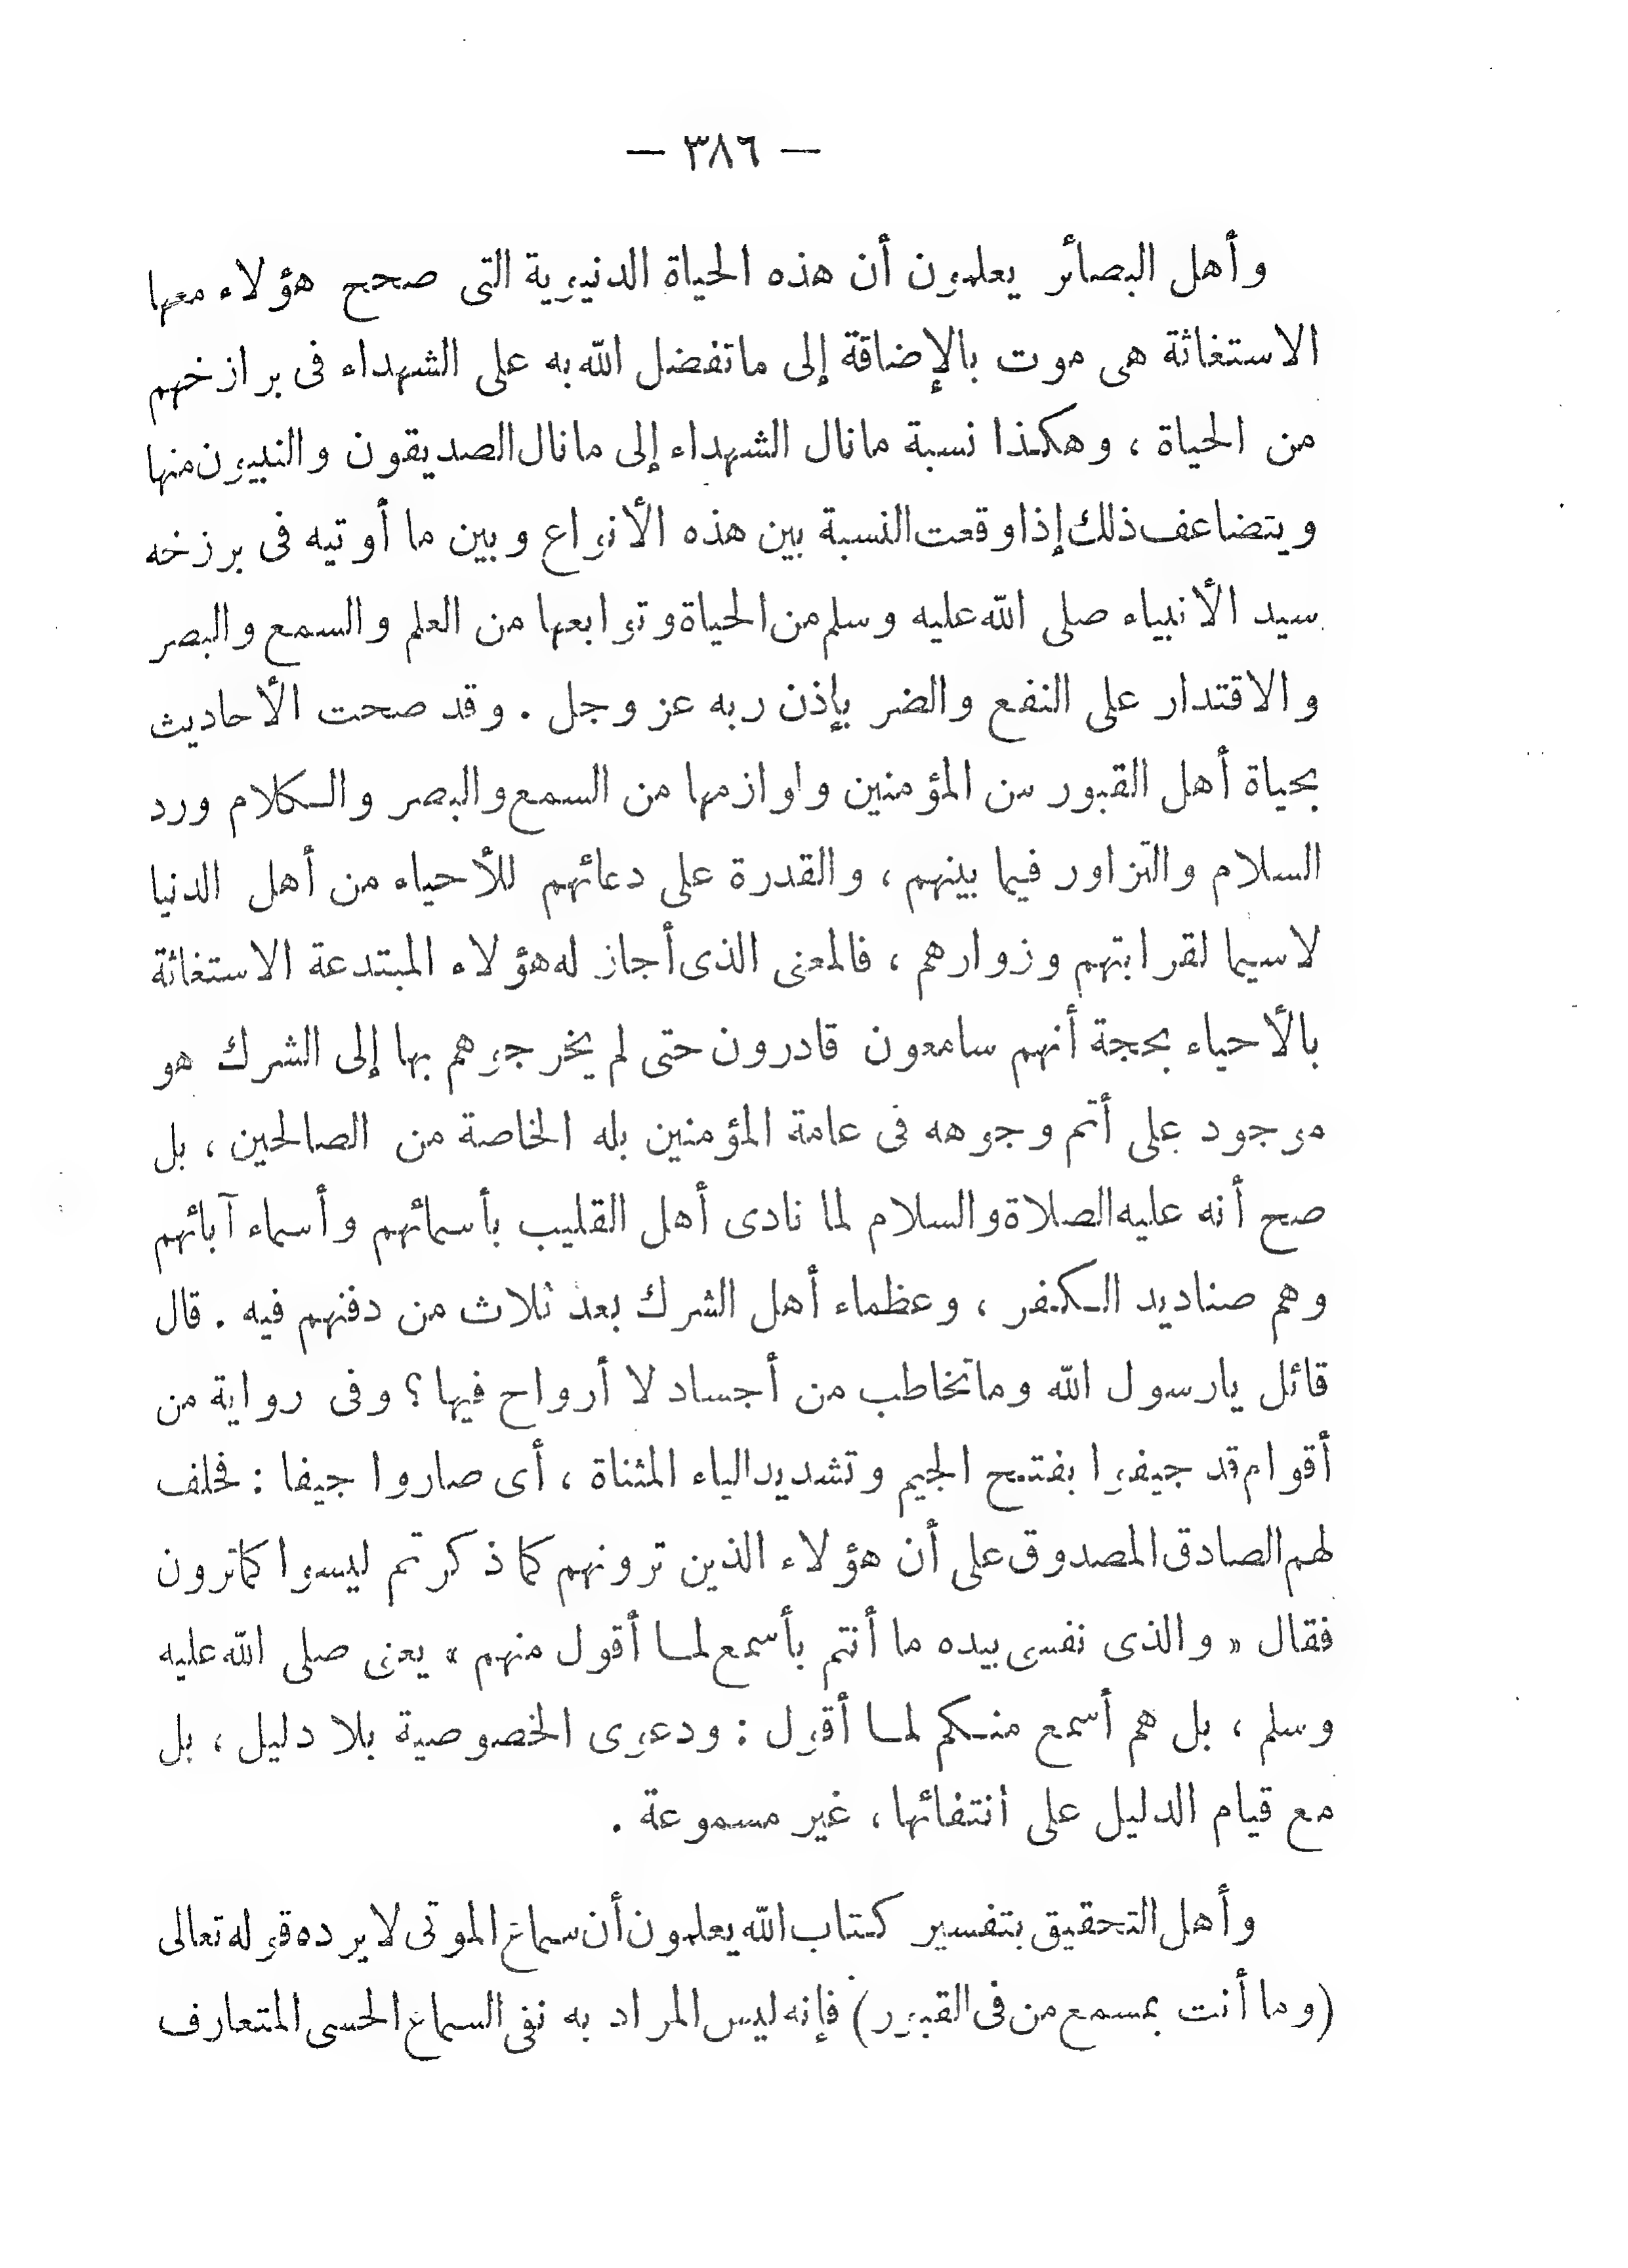 — ٣٨٦ —
وأهل البصائر يعلمون أن هذه الحياة الدنيوية التى صحح هؤلاء معها
الاستغاثة هى موت بالإضافة إلى ما تفضل الله به على الشهداء فى برازخهم
من الحياة ، وهكذا نسبة ما نال الشهداء إلى ما نال الصديقون والنبيون منها
ويتضاعف ذلك إذا وقعت النسبة بين هذه الأنواع وبين ما أوتيه فى برزخه
سيد الأنبياء صلى الله عليه وسلم من الحياة وتوابعها من العلم والسمع والبصر
والاقتدار على النفع والضر بإذن ربه عز وجل . وقد صحت الأحاديث
بحياة أهل القبور من المؤمنين ولوازمها من السمع والبصر والكلام ورد
السلام والتزاور فيما بينهم ، والقدرة على دعائهم للأحياء من أهل الدنيا
لاسيما لقرابتهم وزوارهم ، فالمعنى الذى أجاز له هؤلاء المبتدعة الاستغاثة
بالأحياء بحجة أنهم سامعون قادرون حتى لم يخرجوهم بها إلى الشرك هو
موجود على أتم وجوهه فى عامة المؤمنين بله الخاصة من الصالحين ، بل
صح أنه عليه الصلاة والسلام لما نادى أهل القليب بأسمائهم وأسماء آبائهم
وهم صناديد الكفر ، وعظماء أهل الشرك بعد ثلاث من دفنهم فيه . قال
قائل يارسول الله وما تخاطب من أجساد لا أرواح فيها ؟ وفى رواية من
أقوام قد جيفوا بفتح الجيم وتشديد الياء المثناة ، أى صاروا جيفا : فحلف
لهم الصادق المصدوق على أن هؤلاء الذين ترونهم كما ذكرتم ليسوا كما ترون
فقال « والذى نفسى بيده ما أنتم بأسمع لما أقول منهم » يعنى صلى الله عليه
وسلم ، بل هم أسمع منكم لما أقول : ودعوى الخصوصية بلا دليل ، بل
مع قيام الدليل على انتفائها ، غير مسموعة .
وأهل التحقيق بتفسير كتاب الله يعلمون أن سماع الموتى لا يرده قوله تعالى
(وما أنت بمسمع من فى القبور) فإنه ليس المراد به نفى السماع الحسى المتعارف